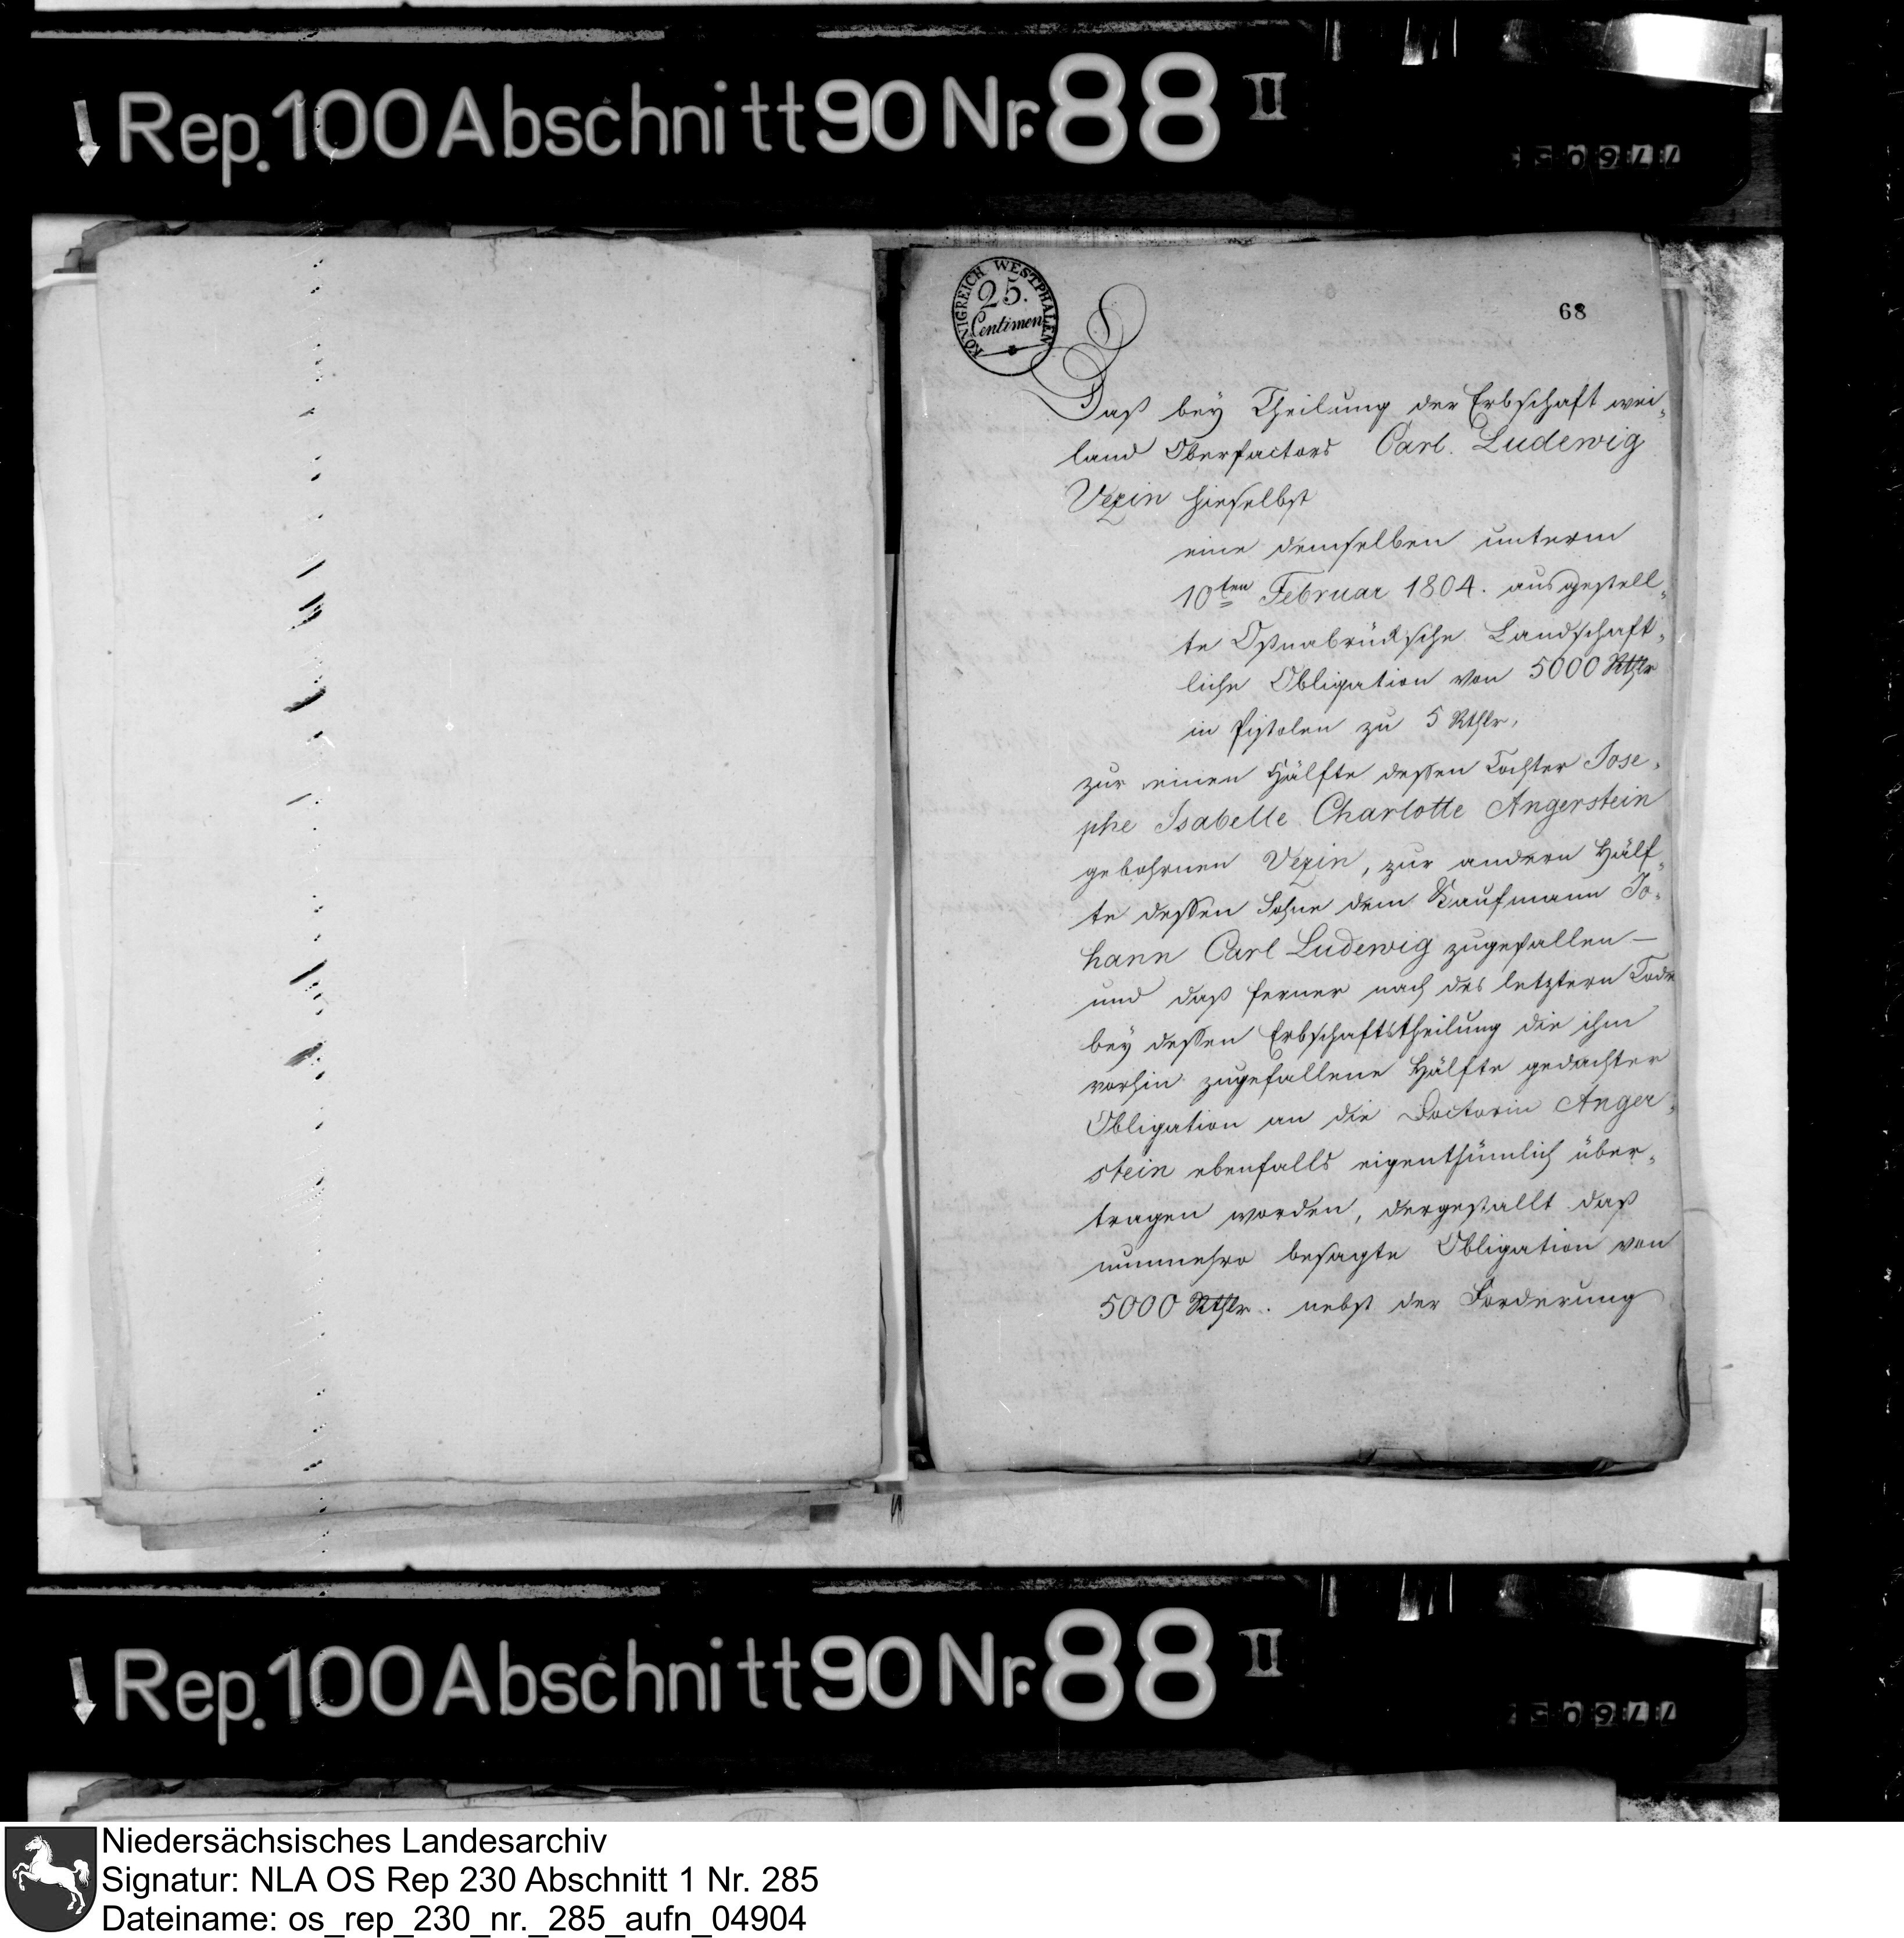 Rep. 100 Abschnitt 90 Nr. 88 II
KÖNIGREICH WESTPHALEN
25.
Centimen
68
Daß bey Theilung der Erbschaft wei-
land Oberfactors Carl. Ludewig
Vezin hieselbst
eine demselben unterm
10ten Februar 1804. ausgestell-
te Osnabrücksche Landschaft-
liche Obligation von 5000 Rthlr
in Pistolen zu 5 Rthlr,
zur einen Hälfte dessen Tochter Jose-
phe Isabelle Charlotte Angerstein
gebohrnen Vezin, zur andern Hälf-
te dessen Sohne dem Kaufmann Jo-
hann Carl Ludewig zugefallen —
und daß ferner nach des letztern Tode
bey dessen Erbschaftstheilung die ihm
vorhin zugefallene Hälfte gedachter
Obligation an die Doctorin Anger-
stein ebenfalls eigenthümlich über-
tragen worden, dergestallt daß
nunmehro besagte Obligation von
5000 Rthlr. nebst der Forderung
Rep. 100 Abschnitt 90 Nr. 88 II
Niedersächsisches Landesarchiv
Signatur: NLA OS Rep 230 Abschnitt 1 Nr. 285
Dateiname: os_rep_230_nr._285_aufn_04904